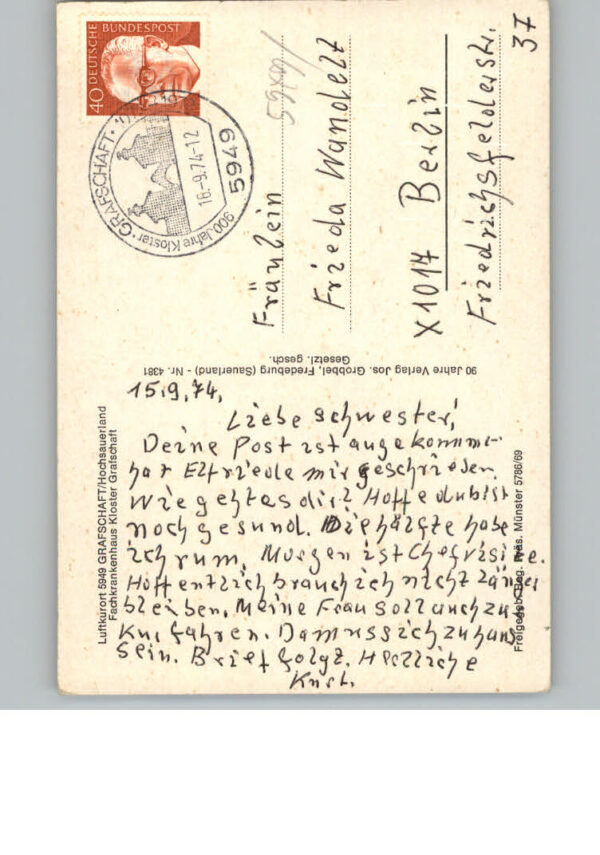 DEUTSCHE BUNDESPOST
40
900 Jahre Kloster · GRAFSCHAFT ·
16.-9.74-12
5949
59491
Fräulein
Frieda Wandelt
X1017 Berlin
Friedrichsfelderstr.
37
90 Jahre Verlag Jos. Grobbel, Fredeburg (Sauerland) - Nr. 4381
Gesetzl. gesch.
Luftkurort 5949 GRAFSCHAFT/Hochsauerland
Fachkrankenhaus Kloster Grafschaft
Freigegeb. Reg. Präs. Münster 5786/69
15.9.74,
Liebe Schwester,
Deine Post ist angekommen
hat Elfriede mir geschrieben.
Wie geht es dir? Hoffe du bist
noch gesund. Die hälfte habe
ich rum. Morgen ist Chefvisite.
Hoffentlich brauch ich nicht länger
bleiben. Meine Frau soll auch zu
Kur fahren. Da muss ich zu haus
sein. Brief folgt. Herzliche